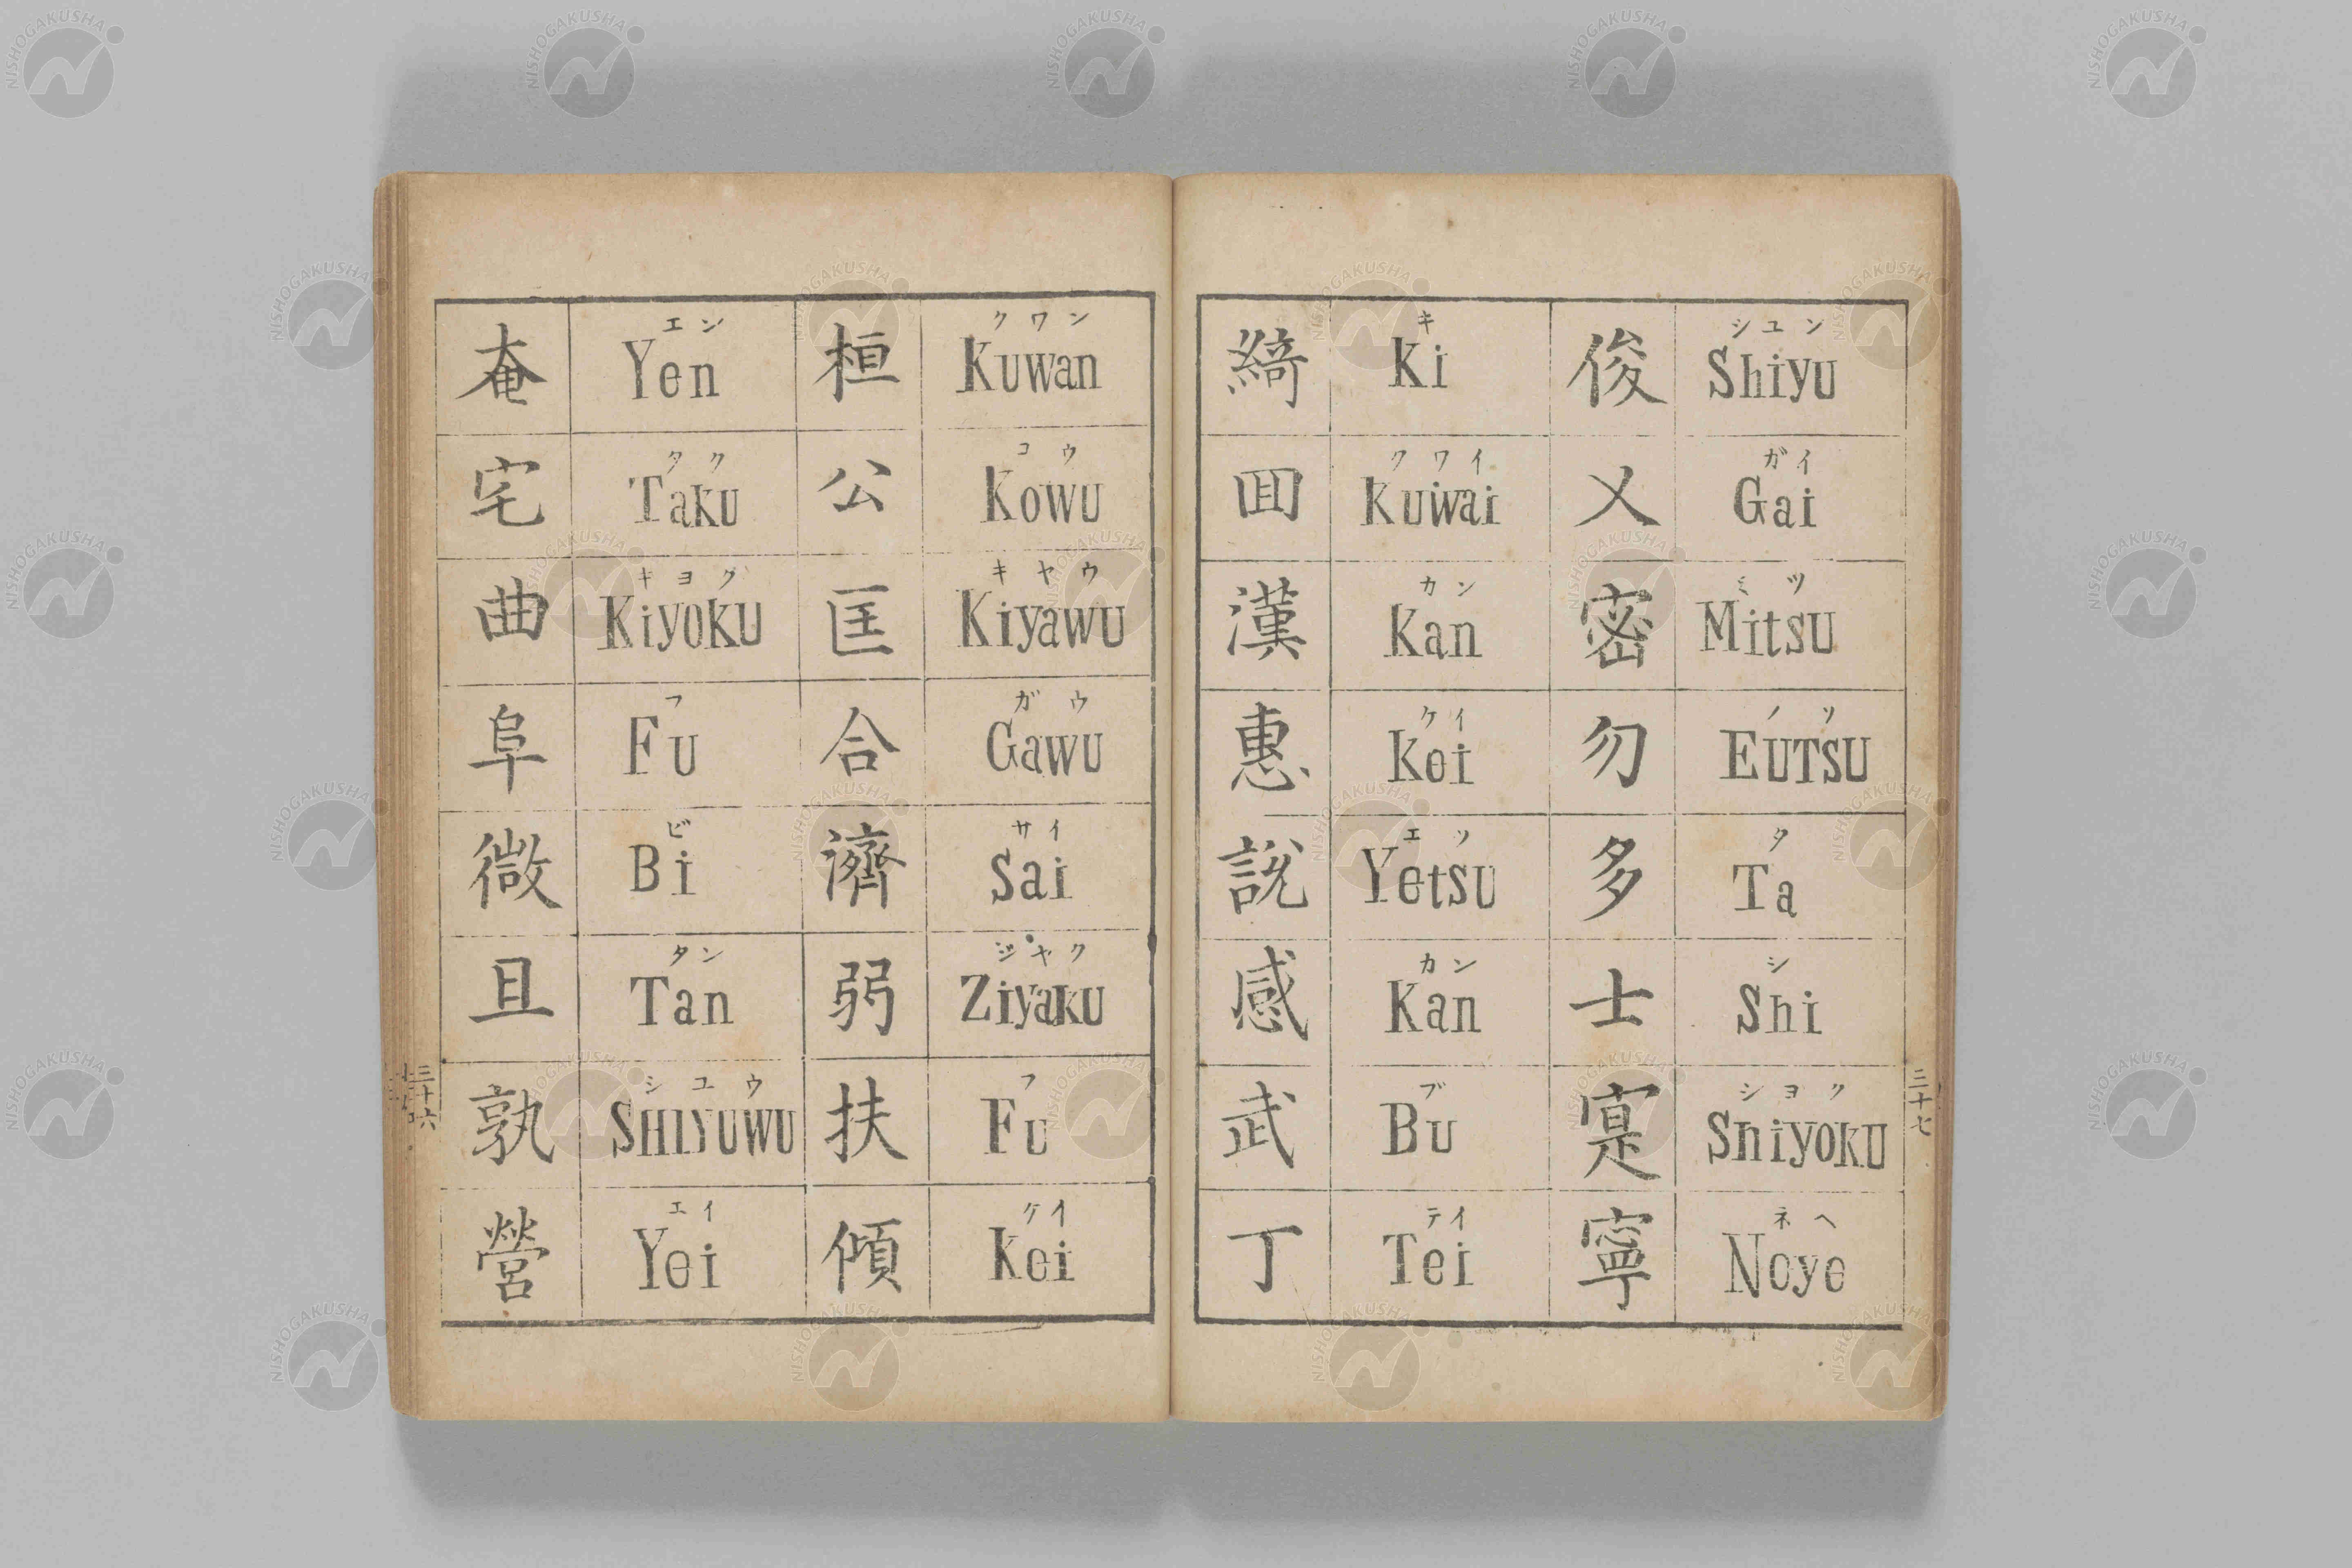 奄 エン Yen
宅 タク Taku
曲 キヨク Kiyoku
阜 フ Fu
微 ビ Bi
旦 タン Tan
孰 シユウ SHIYUWU
營 エイ Yei
桓 クワン Kuwan
公 コウ Kowu
匡 キヤウ Kiyawu
合 ガウ Gawu
濟 サイ Sai
弱 ジヤク Ziyaku
扶 フ Fu
傾 ケイ Kei
三十六
綺 キ Ki
囬 クワイ Kuwai
漢 カン Kan
惠 ケイ Kei
說 エツ Yetsu
感 カン Kan
武 ブ Bu
丁 テイ Tei
俊 シユン Shiyu
乂 ガイ Gai
密 ミツ Mitsu
勿 EUTSU
多 タ Ta
士 シ Shi
寔 シヨク Shiyoku
寧 ネヘ Neye
三十七
NISHOGAKUSHA